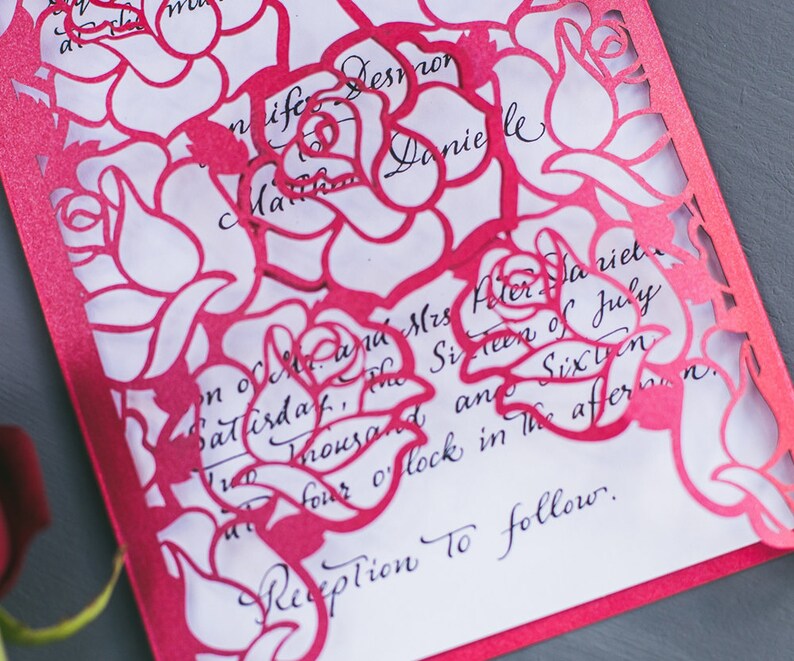 at the
Jennifer Desmon
To
Matthew Danielle
Son of Mr. and Mrs. Peter Danielle
Saturday, The Sixteen of July
Two Thousand and Sixteen
at four o'clock in The afternoon.
Reception To follow.